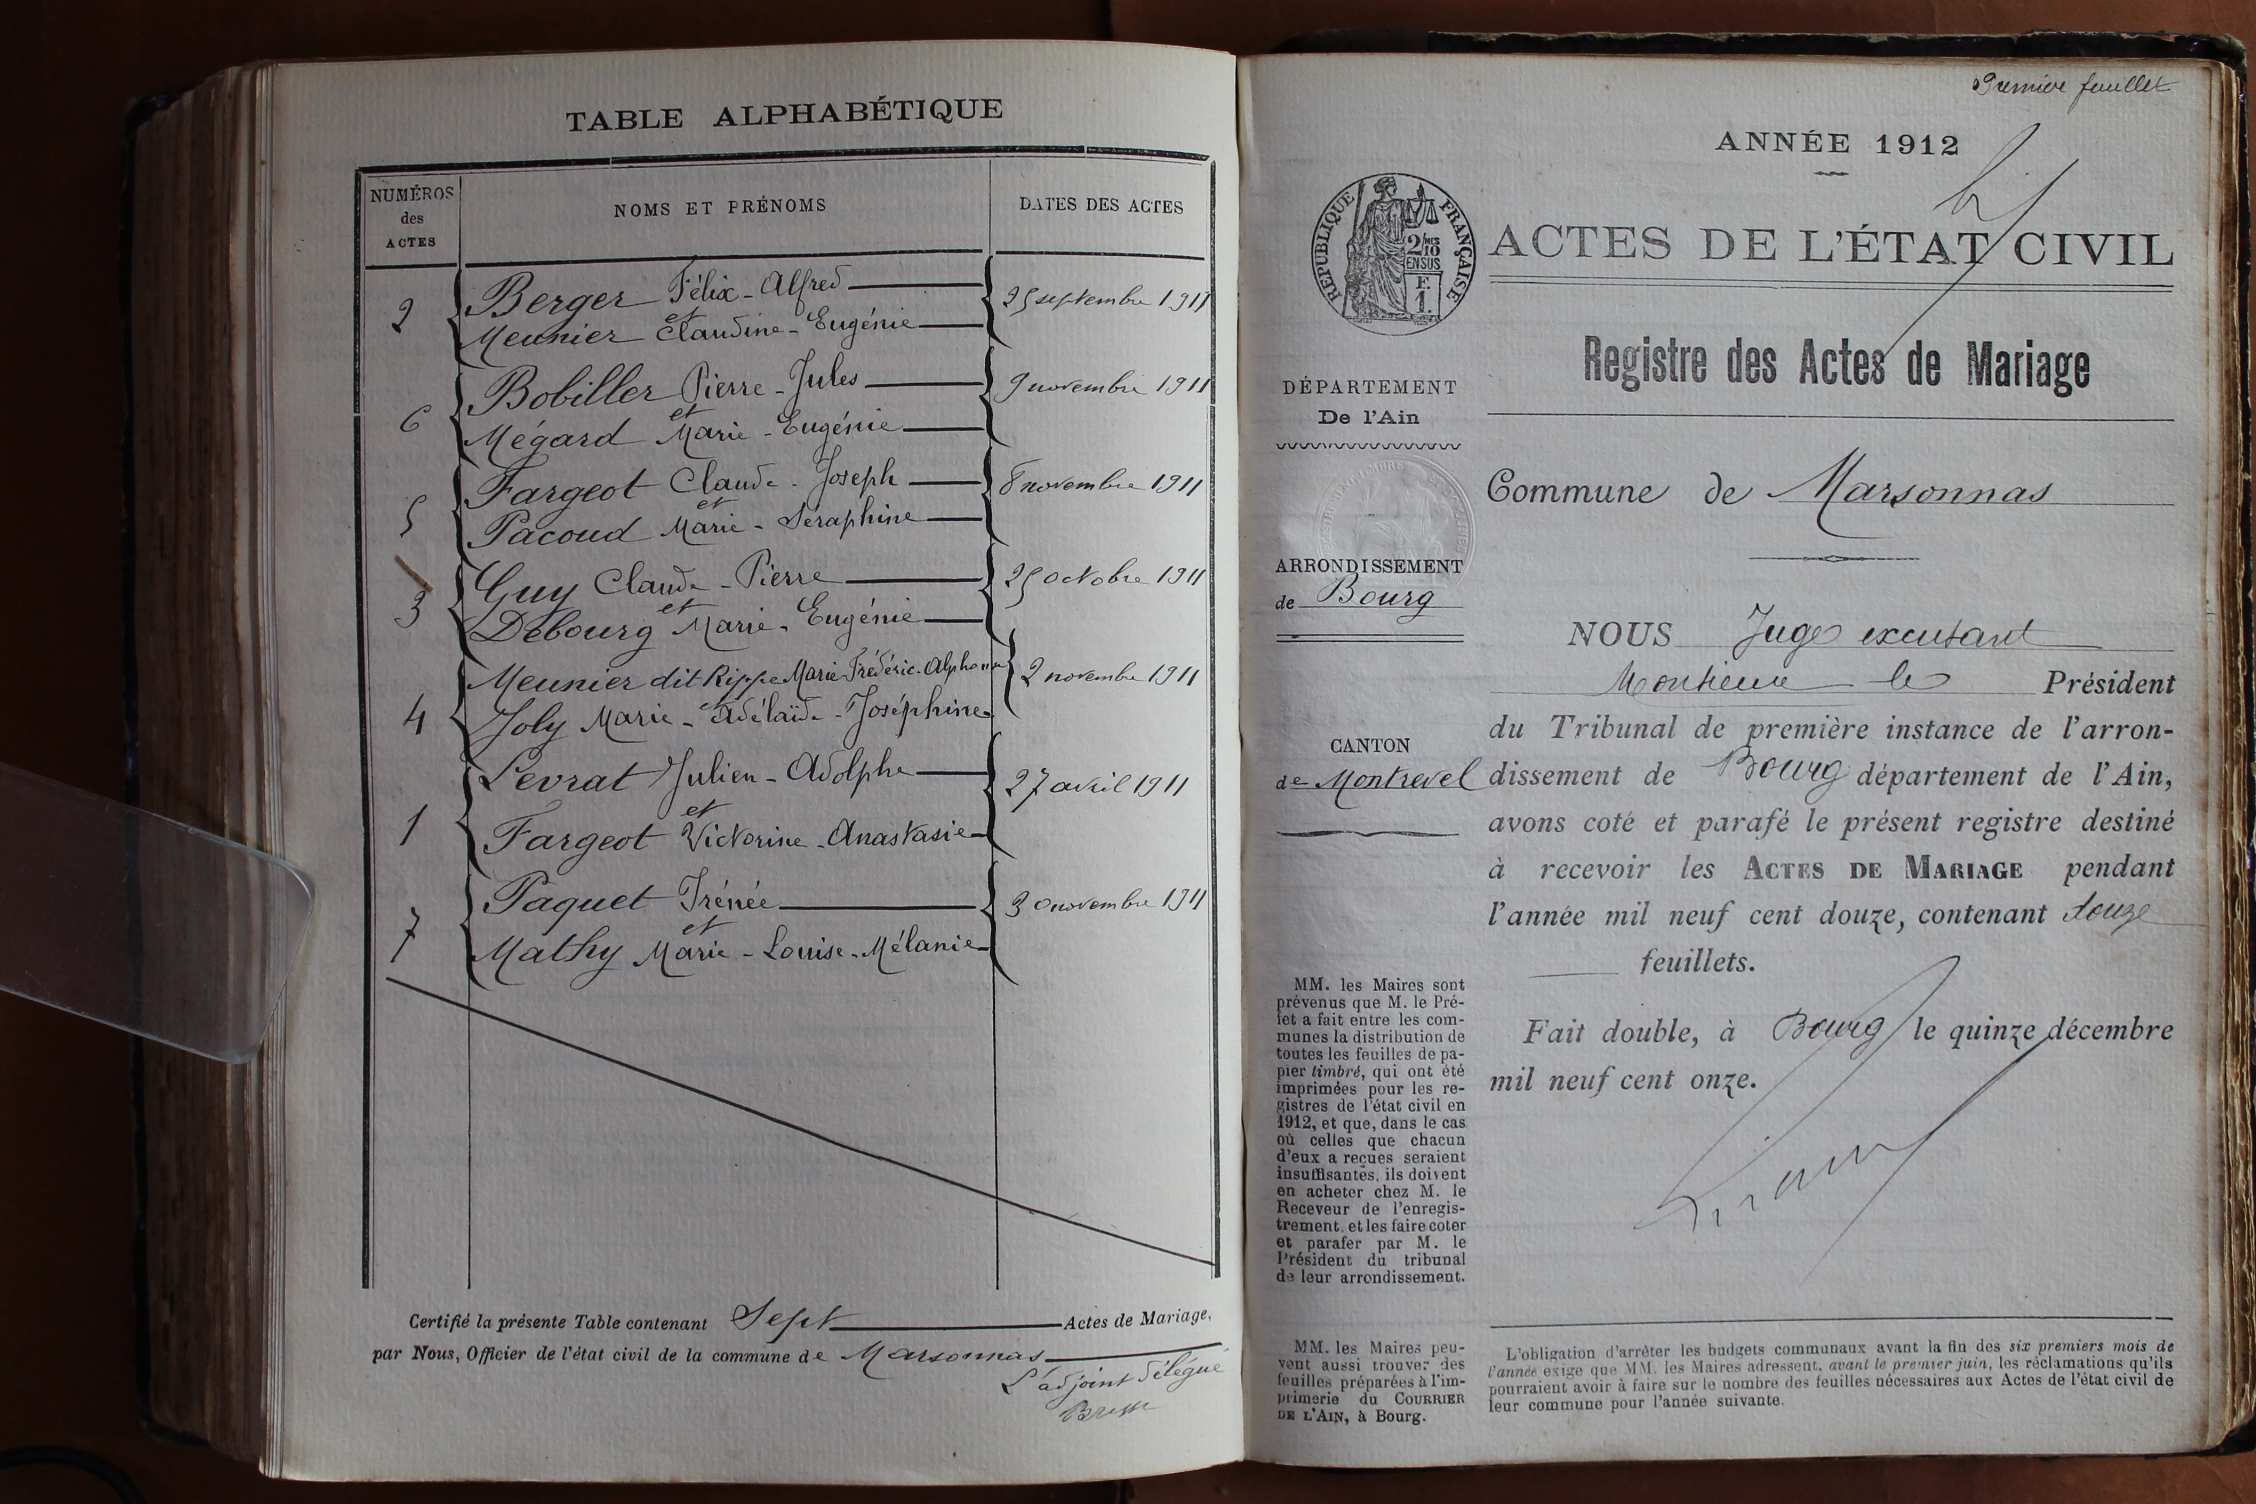 TABLE ALPHABÉTIQUE
NUMÉROS des ACTES
NOMS ET PRÉNOMS
DATES DES ACTES
2 Berger Félix-Alfred 25 septembre 1911
et
Meunier Claudine-Eugénie
6 Bobiller Pierre-Jules 9 novembre 1911
et
Mégard Marie-Eugénie
5 Fargeot Claude-Joseph 8 novembre 1911
et
Pacoud Marie-Séraphine
3 Guy Claude-Pierre 25 octobre 1911
et
Debourg Marie-Eugénie
4 Meunier dit Rippe Marie-Frédéric-Alphonse 2 novembre 1911
et
Joly Marie-Adélaïde-Joséphine
1 Levrat Julien-Adolphe 27 avril 1911
et
Fargeot Victorine-Anastasie
7 Paquet Irénée 30 novembre 1911
et
Mathy Marie-Louise-Mélanie
Certifié la présente Table contenant Sept Actes de Mariage,
par Nous, Officier de l'état civil de la commune de Marsonnas
L'adjoint délégué
Première feuillet
ANNÉE 1912
RÉPUBLIQUE FRANÇAISE
2/MES 10
EN SUS
F.
1.
ACTES DE L'ÉTAT CIVIL
Registre des Actes de Mariage
DÉPARTEMENT
De l'Ain
Commune de Marsonnas
ARRONDISSEMENT
de Bourg
CANTON
de Montrevel
NOUS Juge excusant
Monsieur le Président
du Tribunal de première instance de l'arron-
dissement de Bourg département de l'Ain,
avons coté et parafé le présent registre destiné
à recevoir les ACTES DE MARIAGE pendant
l'année mil neuf cent douze, contenant douze
feuillets.
Fait double, à Bourg le quinze décembre
mil neuf cent onze.
MM. les Maires sont
prévenus que M. le Pré-
fet a fait entre les com-
munes la distribution de
toutes les feuilles de pa-
pier timbré, qui ont été
imprimées pour les re-
gistres de l'état civil en
1912, et que, dans le cas
où celles que chacun
d'eux a reçues seraient
insuffisantes, ils doivent
en acheter chez M. le
Receveur de l'enregis-
trement, et les faire coter
et parafer par M. le
Président du tribunal
de leur arrondissement.
MM. les Maires peu-
vent aussi trouver des
feuilles préparées à l'im-
primerie du COURRIER
DE L'AIN, à Bourg.
L'obligation d'arrêter les budgets communaux avant la fin des six premiers mois de
l'année exige que MM. les Maires adressent, avant le premier juin, les réclamations qu'ils
pourraient avoir à faire sur le nombre des feuilles nécessaires aux Actes de l'état civil de
leur commune pour l'année suivante.